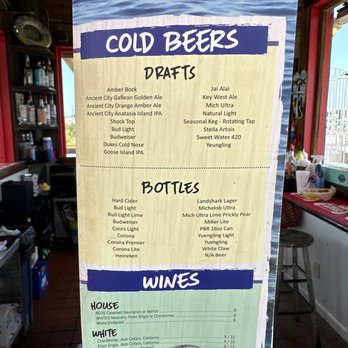 COLD BEERS
DRAFTS
Amber Bock
Ancient City Galleon Golden Ale
Ancient City Orange Amber Ale
Ancient City Anatasia Island IPA
Shock Top
Bud Light
Budweiser
Dukes Cold Nose
Goose Island IPA
Jai Alai
Key West Ale
Mich Ultra
Natural Light
Seasonal Keg - Rotating Tap
Stella Artois
Sweet Water 420
Yuengling
BOTTLES
Hard Cider
Bud Light
Bud Light Lime
Budweiser
Coors Light
Corona
Corona Premier
Corona Lite
Heineken
Landshark Lager
Michelob Ultra
Mich Ultra Lime Prickly Pear
Miller Lite
PBR 16oz Can
Yuengling Light
Yuengling
White Claw
N/A Beer
WINES
HOUSE
REDS Cabernet Sauvignon or Merlot
WHITES Moscato, Pinot Grigio or Chardonnay
White Zinfandel
WHITE
Chardonnay, Josh Cellars, California
Pinot Grigio, Josh Cellars, California